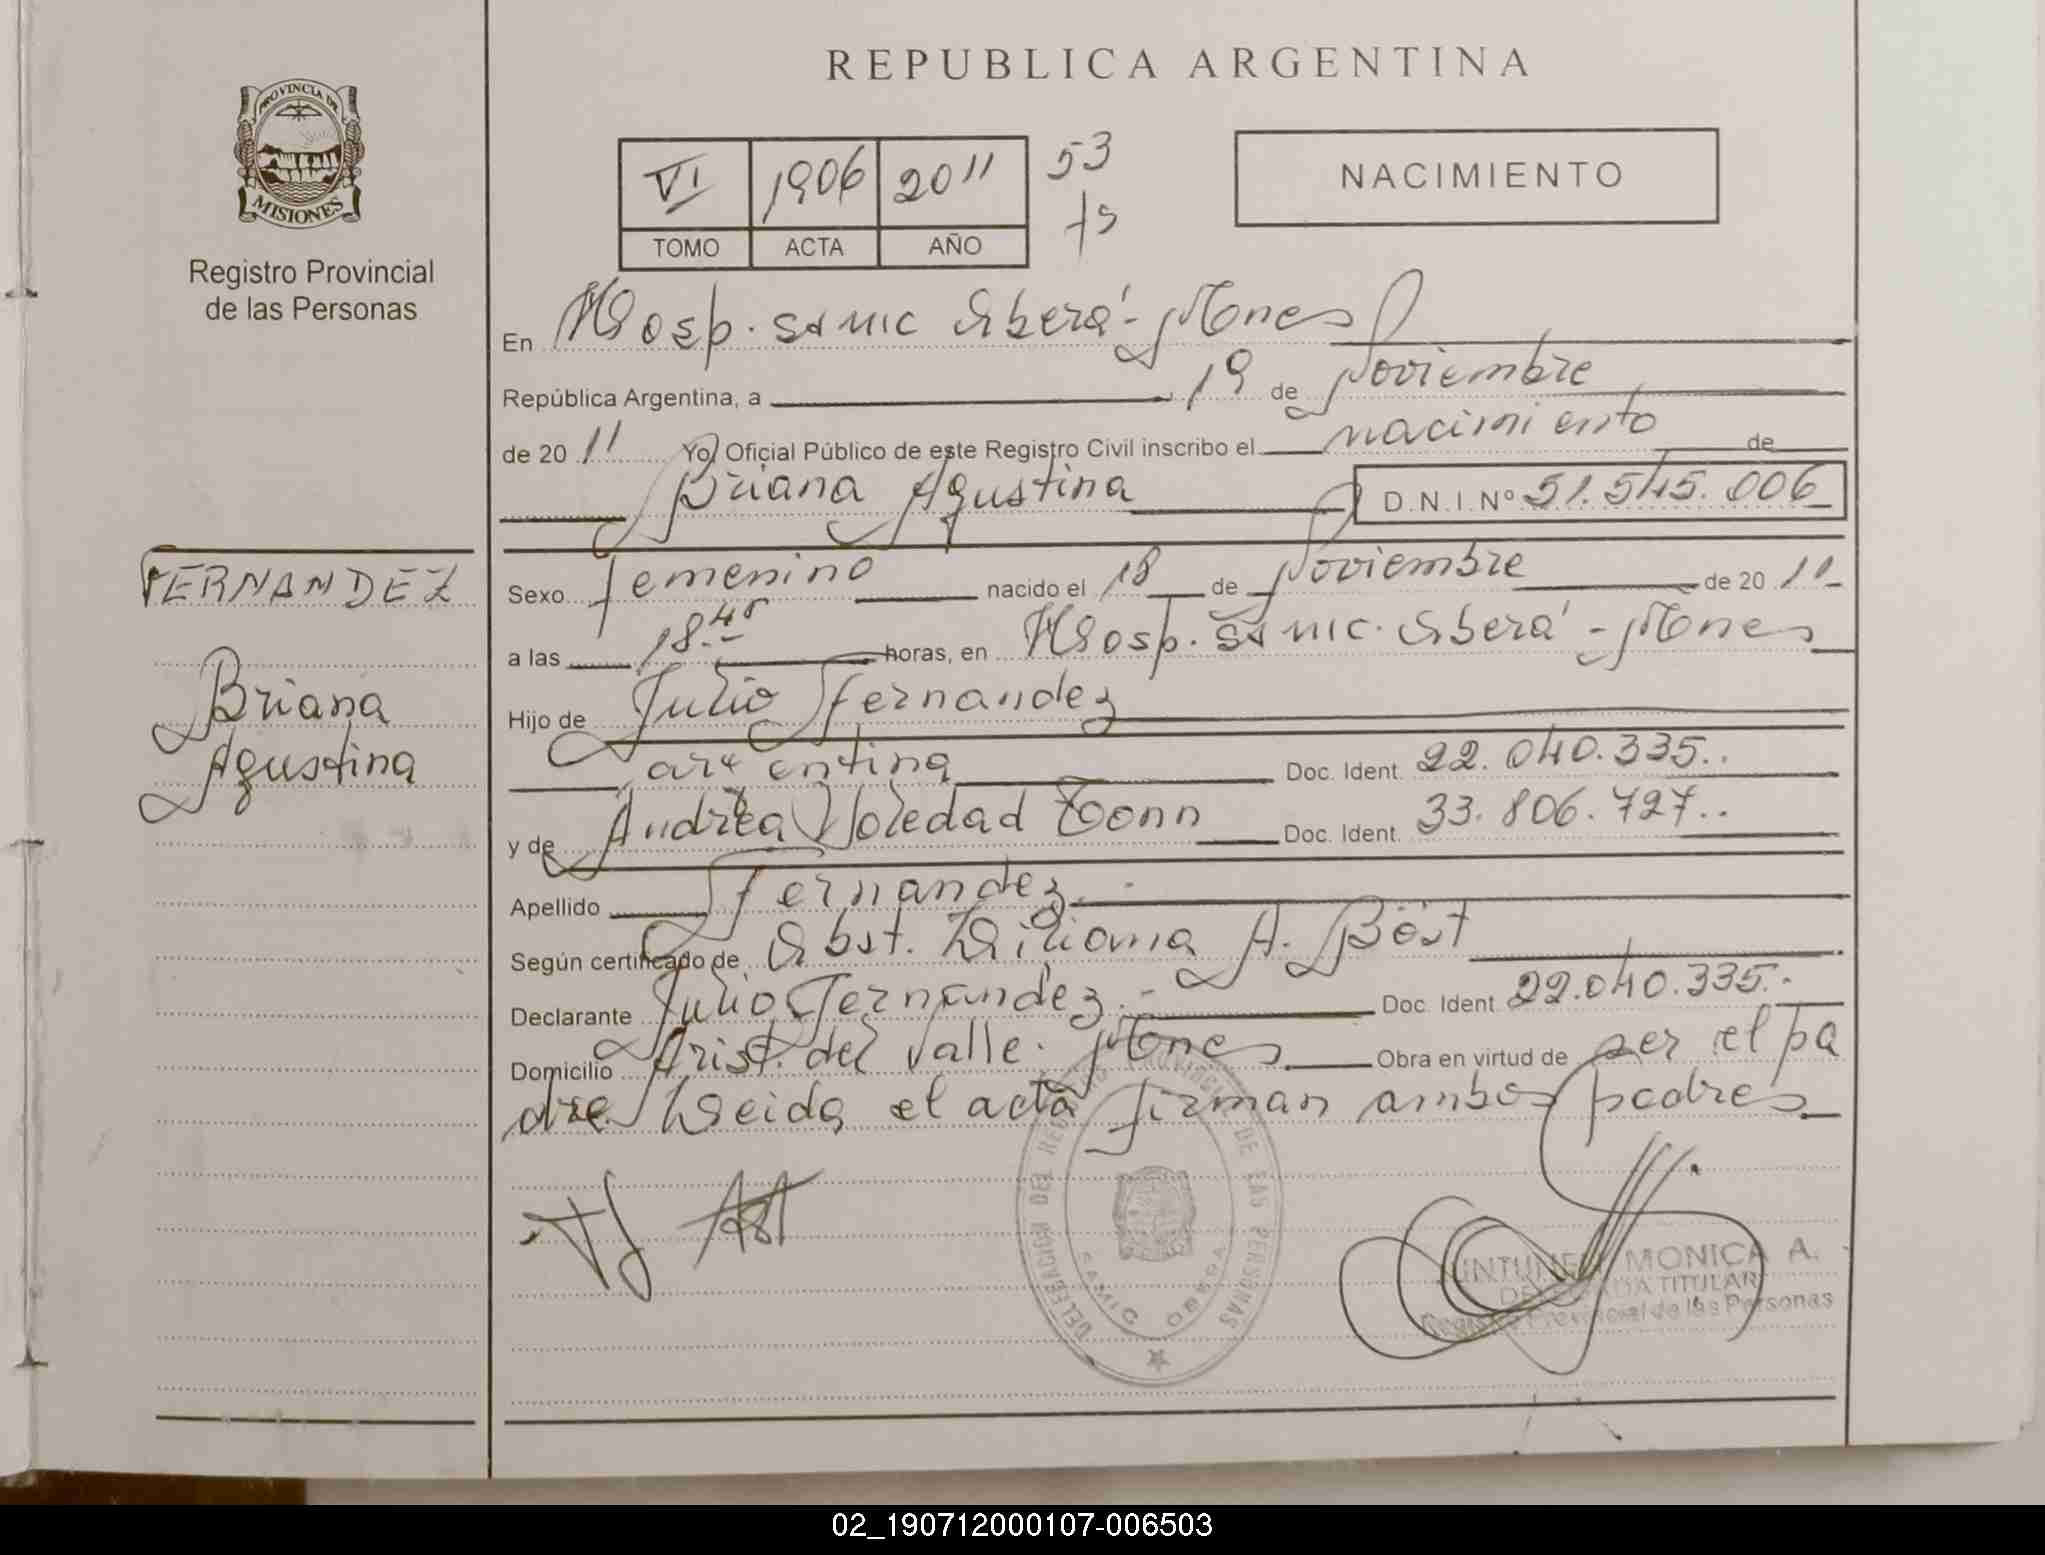 REPUBLICA ARGENTINA
PROVINCIA DE
MISIONES
Registro Provincial
de las Personas
VI 1906 2011 53
TOMO ACTA AÑO
NACIMIENTO
En Hosp. SAMIC Oberá - Mnes
República Argentina, a 19 de Noviembre
de 20 11 Yo, Oficial Público de este Registro Civil inscribo el nacimiento de
Briana Agustina D.N.I.Nº 51.545.006
FERNANDEZ
Briana
Agustina
Sexo femenino nacido el 18 de Noviembre de 20 11
a las 18.45 horas, en Hosp. SAMIC. Oberá - Mnes
Hijo de Julio Fernandez
argentina Doc. Ident. 22.040.335..
y de Andrea Soledad Tonn Doc. Ident. 33.806.727..
Apellido Fernandez.-
Según certificado de Obst. Liliana A. Böst
Declarante Julio Fernandez.- Doc. Ident 22.040.335.-
Domicilio Arist. del Valle. Mnes Obra en virtud de ser el pa
dre Leida el acta firman ambos padres
DELEGACION DEL REGISTRO PROVINCIAL DE LAS PERSONAS
SAMIC OBERA
MONICA A.
DELEGADA TITULAR
Registro Provincial de las Personas
02_190712000107-006503